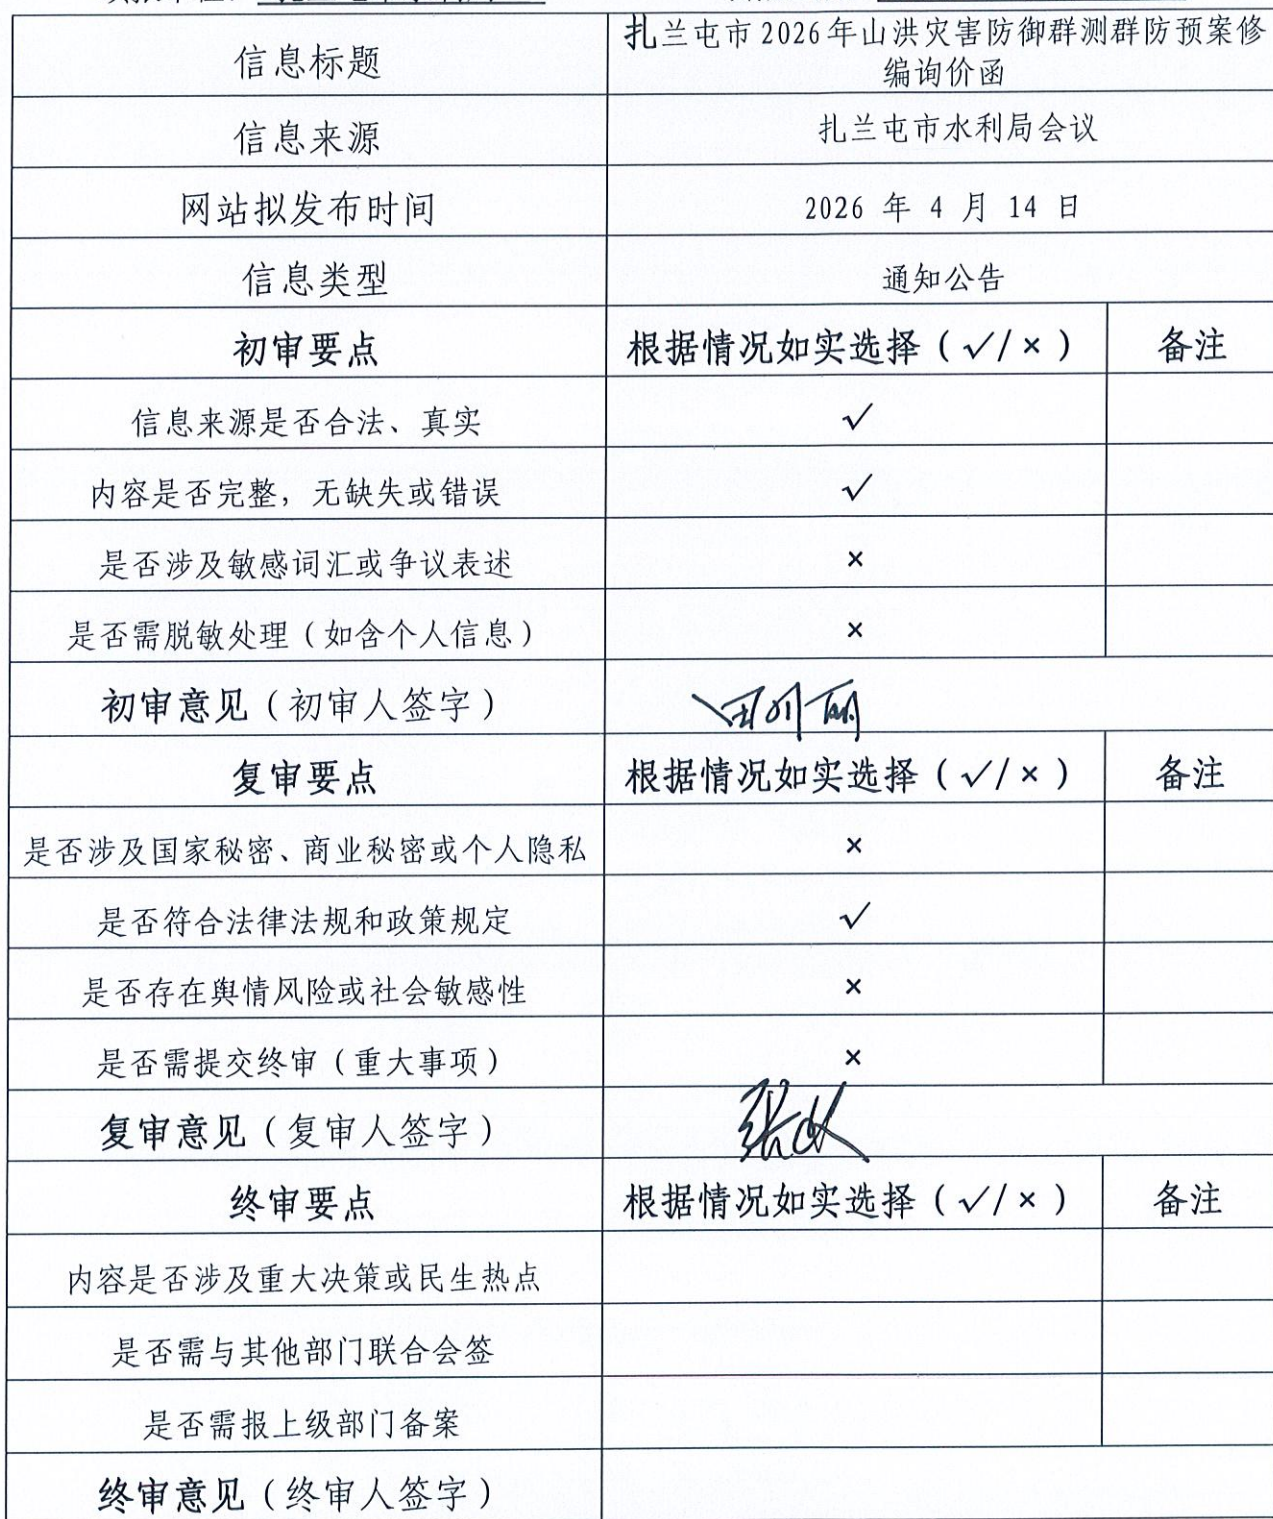 信息标题
扎兰屯市2026年山洪灾害防御群测群防预案修
编询价函
信息来源
扎兰屯市水利局会议
网站拟发布时间
2026 年 4 月 14 日
信息类型
通知公告
初审要点
根据情况如实选择（√/×）
备注
信息来源是否合法、真实
√
内容是否完整，无缺失或错误
√
是否涉及敏感词汇或争议表述
×
是否需脱敏处理（如含个人信息）
×
初审意见（初审人签字）
复审要点
根据情况如实选择（√/×）
备注
是否涉及国家秘密、商业秘密或个人隐私
×
是否符合法律法规和政策规定
√
是否存在舆情风险或社会敏感性
×
是否需提交终审（重大事项）
×
复审意见（复审人签字）
终审要点
根据情况如实选择（√/×）
备注
内容是否涉及重大决策或民生热点
是否需与其他部门联合会签
是否需报上级部门备案
终审意见（终审人签字）